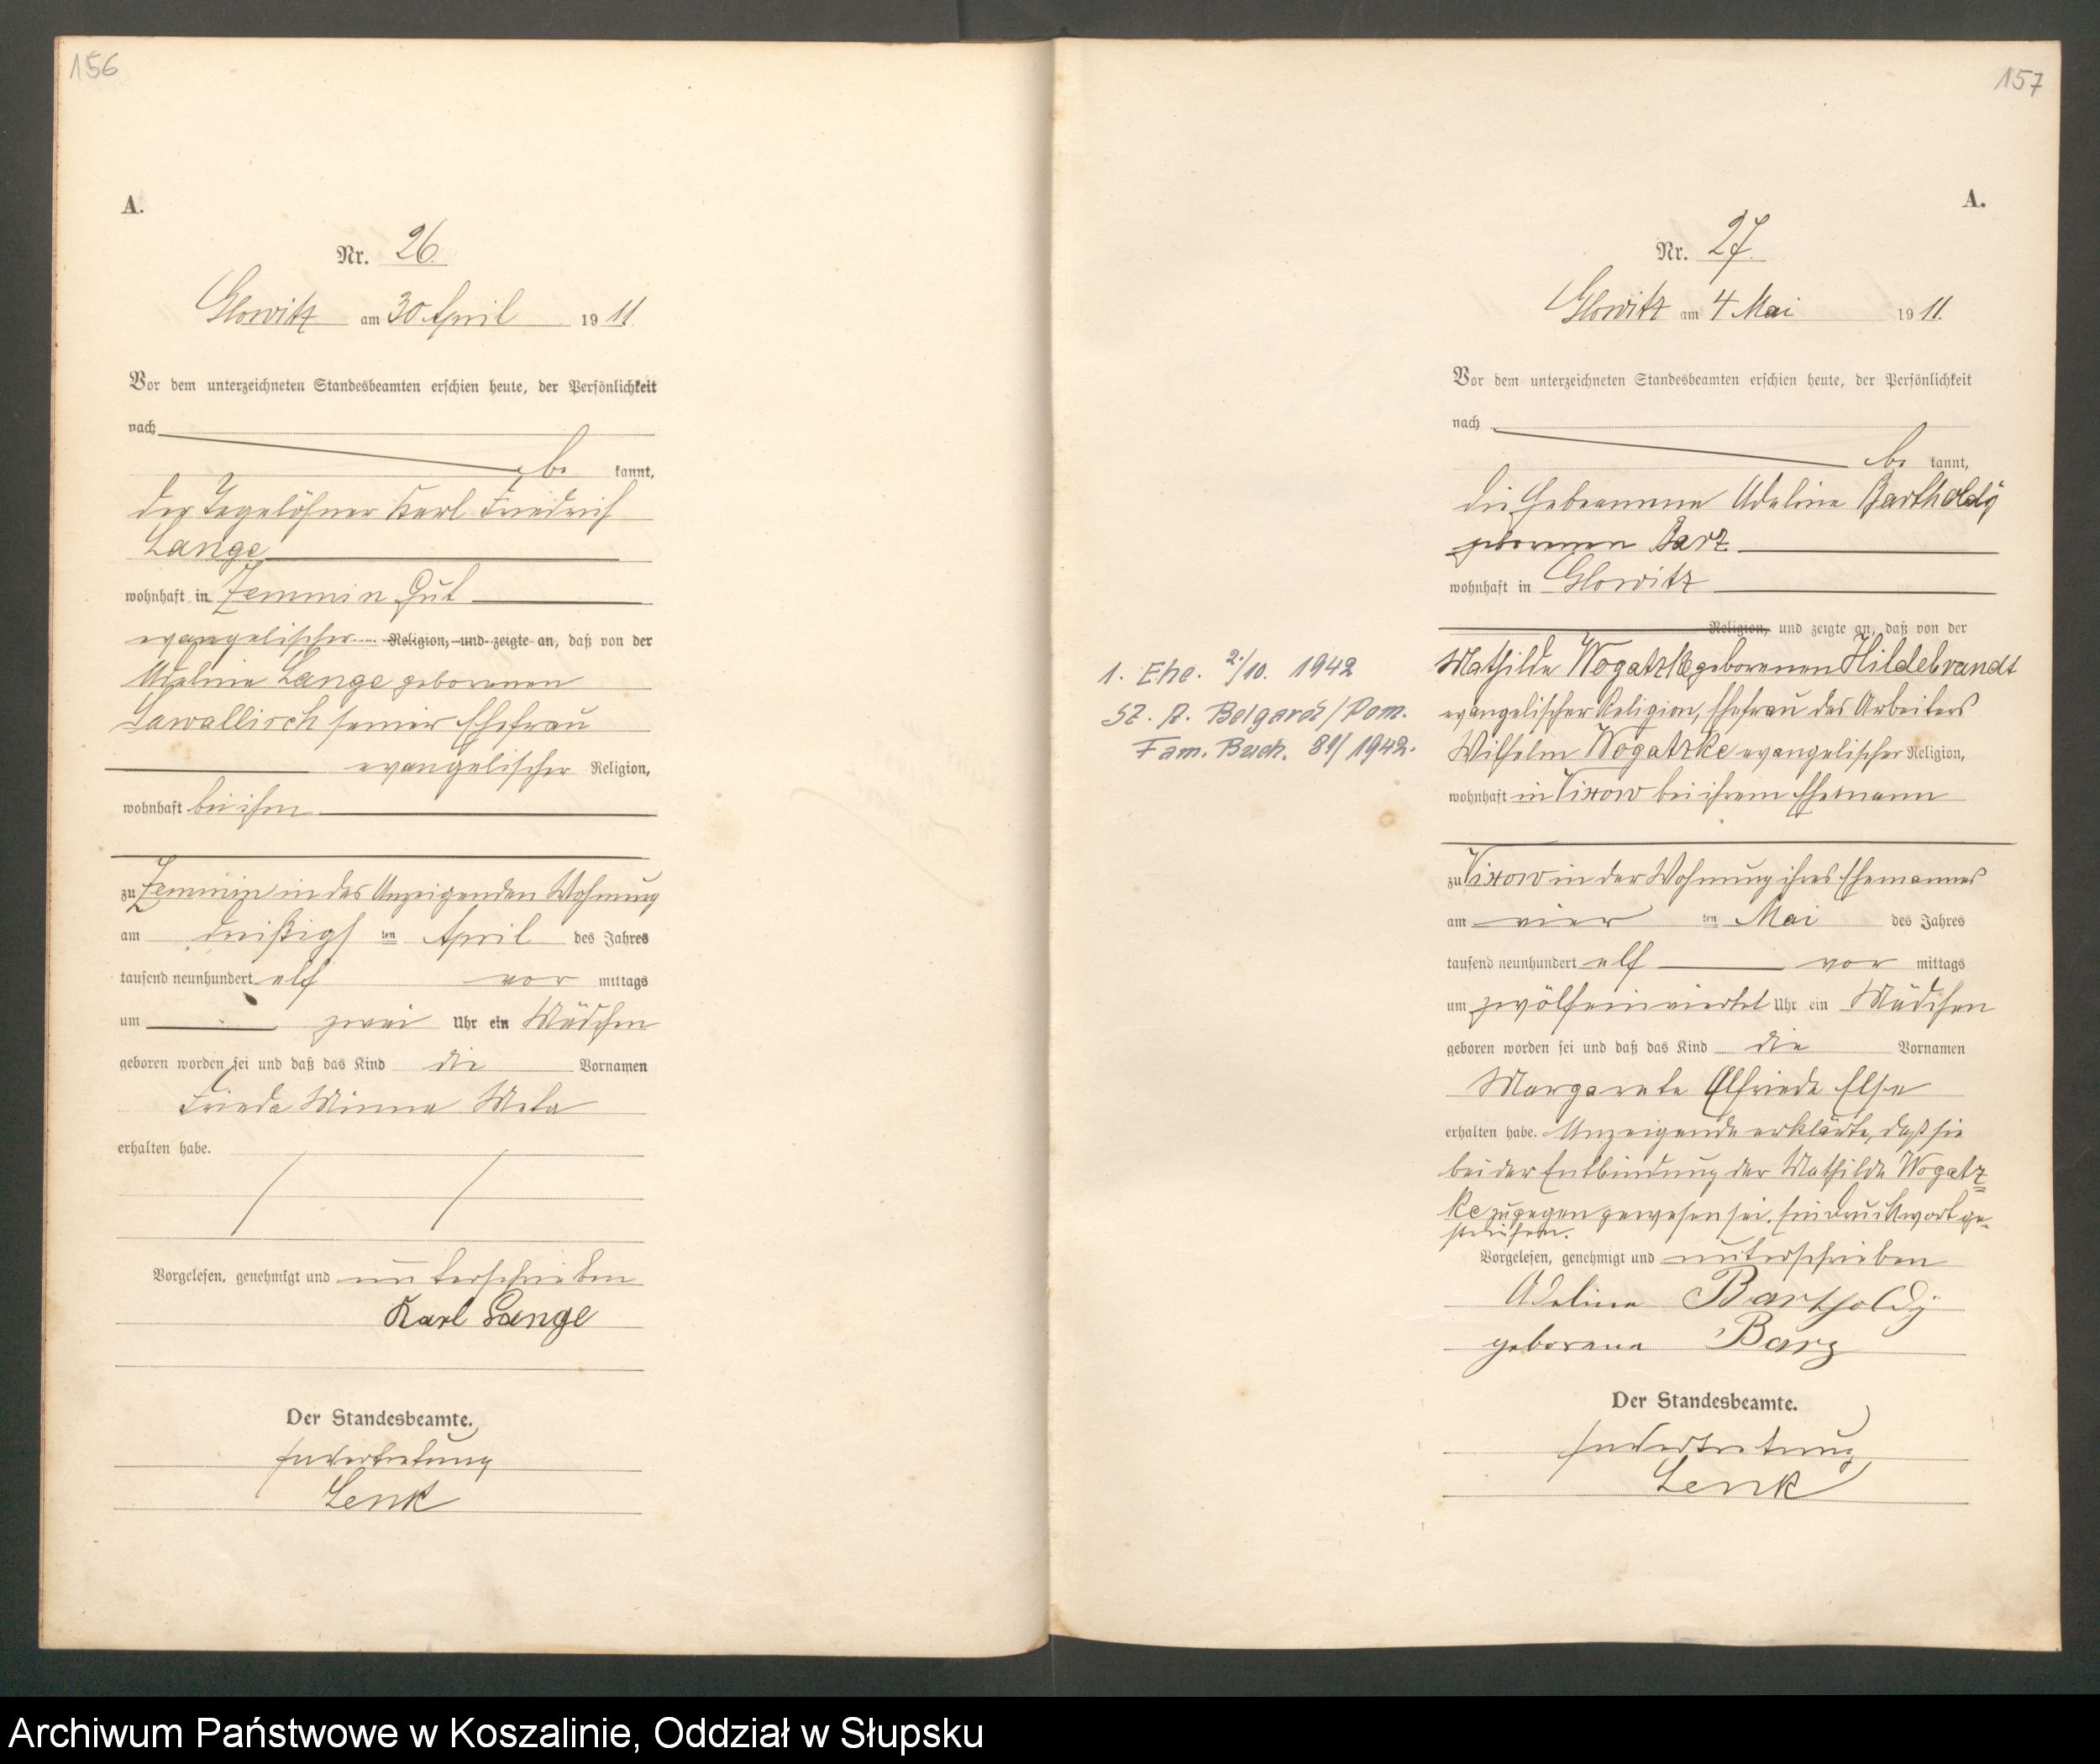 156
A.
Nr. 26.
Glowitz am 30 April 1911
Vor dem unterzeichneten Standesbeamten erschien heute, der Persönlichkeit
nach
be kannt,
der Tagelöhner Karl Friedrich
Lange
wohnhaft in Zemmin Gut
evangelischer Religion, und zeigte an, daß von der
Adeline Lange geborenen
Sawallisch seiner Ehefrau
evangelischer Religion,
wohnhaft bei ihm
zu Zemmin in des Anzeigenden Wohnung
am dreißigsten April des Jahres
tausend neunhundert elf vor mittags
um zwei Uhr ein Mädchen
geboren worden sei und daß das Kind die Vornamen
Frieda Minna Meta
erhalten habe.
Vorgelesen, genehmigt und unterschrieben
Karl Lange
Der Standesbeamte.
In Vertretung
Lenk
157
A.
Nr. 27.
Glowitz am 4 Mai 1911.
Vor dem unterzeichneten Standesbeamten erschien heute, der Persönlichkeit
nach
be kannt,
die Hebeamme Adeline Bartholdy
geborenen Barz
wohnhaft in Glowitz
Religion, und zeigte an, daß von der
Mathilde Wogatzke geborenen Hildebrandt
evangelischer Religion, Ehefrau des Arbeiters
Wilhelm Wogatzke evangelischer Religion,
wohnhaft in Vixow bei ihrem Ehemann
zu Vixow in der Wohnung ihres Ehemannes
am vier ten Mai des Jahres
tausend neunhundert elf vor mittags
um zwölfeinviertel Uhr ein Mädchen
geboren worden sei und daß das Kind die Vornamen
Margarete Elfriede Else
erhalten habe. Anzeigende erklärte, daß sie
bei der Entbindung der Mathilde Wogatz=
ke zugegen gewesen sei. Ein Druckwort ge-
strichen.
Vorgelesen, genehmigt und unterschrieben
Adeline Bartholdy
geborene Barz
Der Standesbeamte.
In Vertretung
Lenk
1. Ehe. 2./10. 1942
St. A. Belgard/Pom.
Fam. Buch. 81/1942.
Archiwum Państwowe w Koszalinie, Oddział w Słupsku